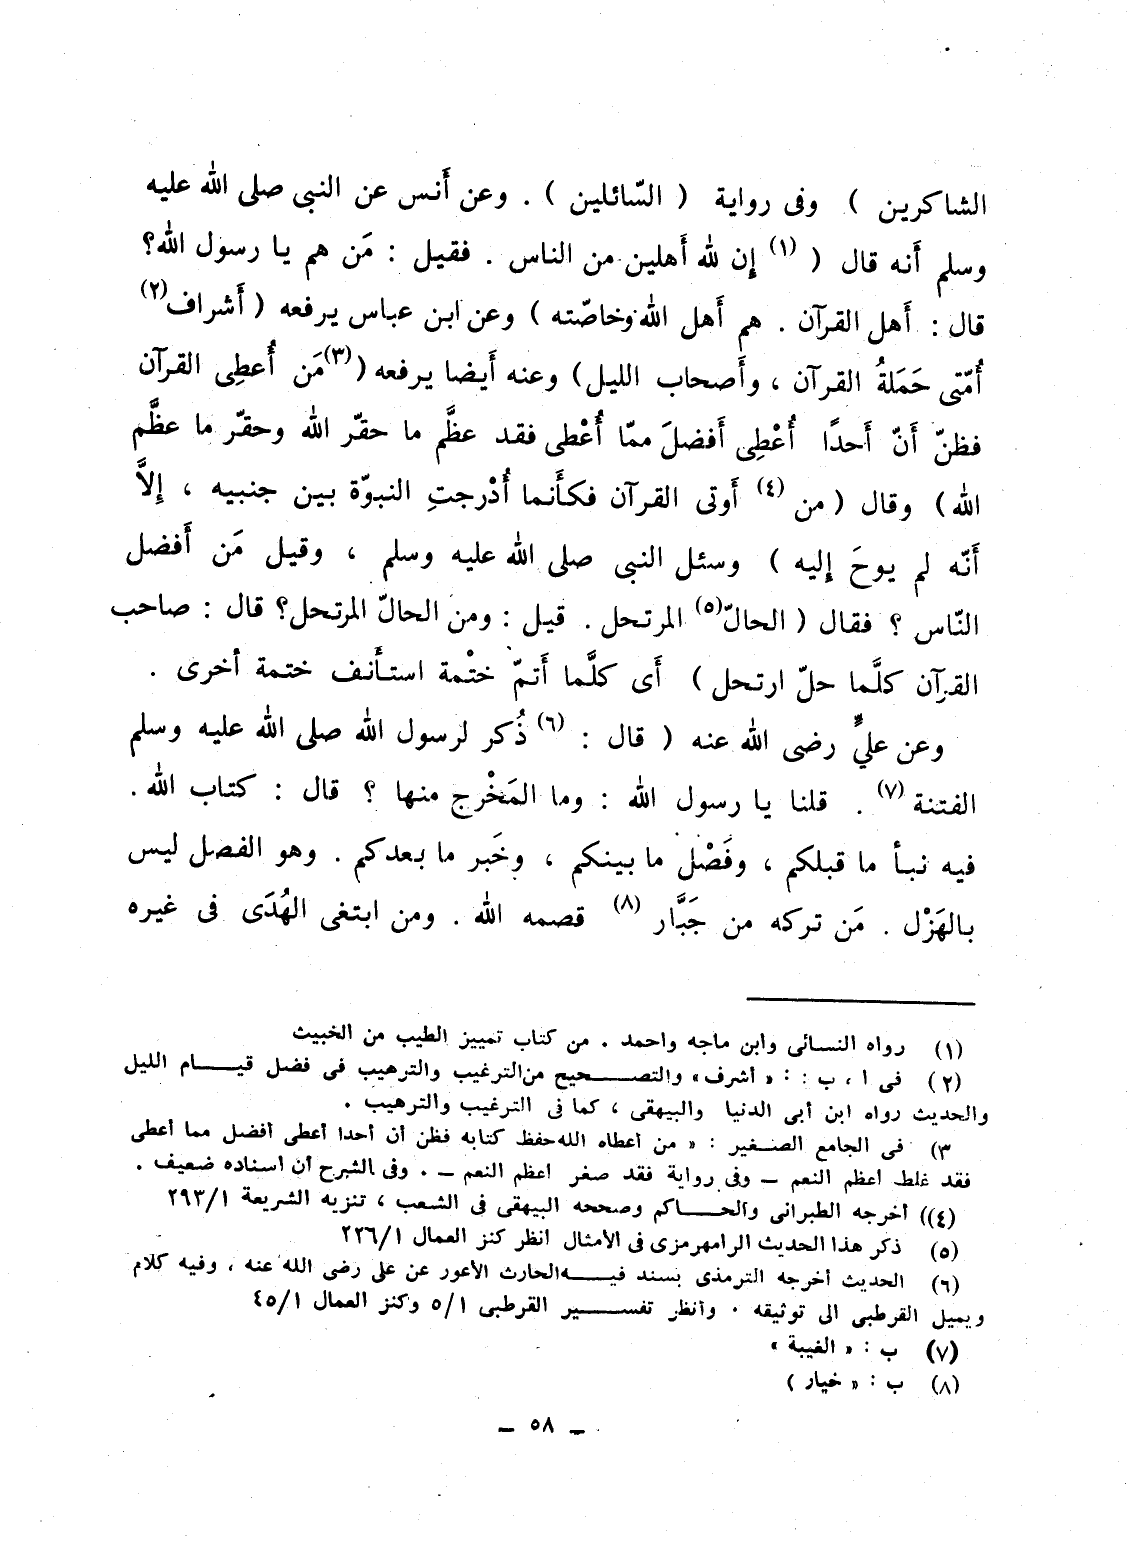 الشاكرين ) وفى رواية ( السّائلين ) . وعن أَنس عن النبى صلى الله عليه
وسلم أَنه قال ( (١) إِن لله أَهلين من الناس . فقيل : مَن هم يا رسول الله؟
قال : أَهل القرآن . هم أَهل الله وخاصّته ) وعن ابن عباس يرفعه ( أَشراف(٢)
أُمّتى حَمَلةُ القرآن ، وأَصحاب الليل) وعنه أَيضا يرفعه ((٣)مَن أُعطِى القرآن
فظنّ أَنّ أَحدًا أُعْطِى أَفضلَ ممّا أُعْطى فقد عظَّم ما حقّر الله وحقّر ما عظَّم
الله) وقال (من (٤) أَوتى القرآن فكأَنما أُدْرجتِ النبوّة بين جنبيه ، إِلاَّ
أَنّه لم يوحَ إِليه ) وسئل النبى صلى الله عليه وسلم ، وقيل مَن أَفضل
النّاس ؟ فقال ( الحالّ(٥) المرتحل . قيل : ومن الحالّ المرتحل؟ قال : صاحب
القرآن كلَّما حلّ ارتحل ) أَى كلَّما أَتمّ ختْمة استأَنف ختمة أخرى .
وعن عليٍّ رضى الله عنه ( قال : (٦) ذُكر لرسول الله صلى الله عليه وسلم
الفتنة (٧) . قلنا يا رسول الله : وما المَخْرج منها ؟ قال : كتاب الله .
فيه نبأ ما قبلكم ، وفَصْل ما بينكم ، وخَبر ما بعدكم . وهو الفصل ليس
بالهَزْل . مَن تركه من جَبَّار (٨) قصمه الله . ومن ابتغى الهُدَى فى غيره
(١) رواه النسائى وابن ماجه واحمد . من كتاب تمييز الطيب من الخبيث
(٢) فى ا ، ب : : « أشرف» والتصحيح من الترغيب والترهيب فى فضل قيام الليل
والحديث رواه ابن أبى الدنيا والبيهقى ، كما فى الترغيب والترهيب .
٣) فى الجامع الصغير : « من أعطاه الله حفظ كتابه فظن أن أحدا أعطى أفضل مما أعطى
فقد غلط أعظم النعم — وفى رواية فقد صغر أعظم النعم — . وفى الشرح أن اسناده ضعيف .
(٤)) أخرجه الطبرانى والحاكم وصححه البيهقى فى الشعب ، تنزيه الشريعة ٢٩٣/١
(٥) ذكر هذا الحديث الرامهرمزى فى الأمثال انظر كنز العمال ٢٢٦/١
(٦) الحديث أخرجه الترمذى بسند فيه الحارث الأعور عن على رضى الله عنه ، وفيه كلام
ويميل القرطبى الى توثيقه . وانظر تفسير القرطبى ٥/١ وكنز العمال ٤٥/١
(٧) ب : « الغيبة »
(٨) ب : « خيار )
— ٥٨ —